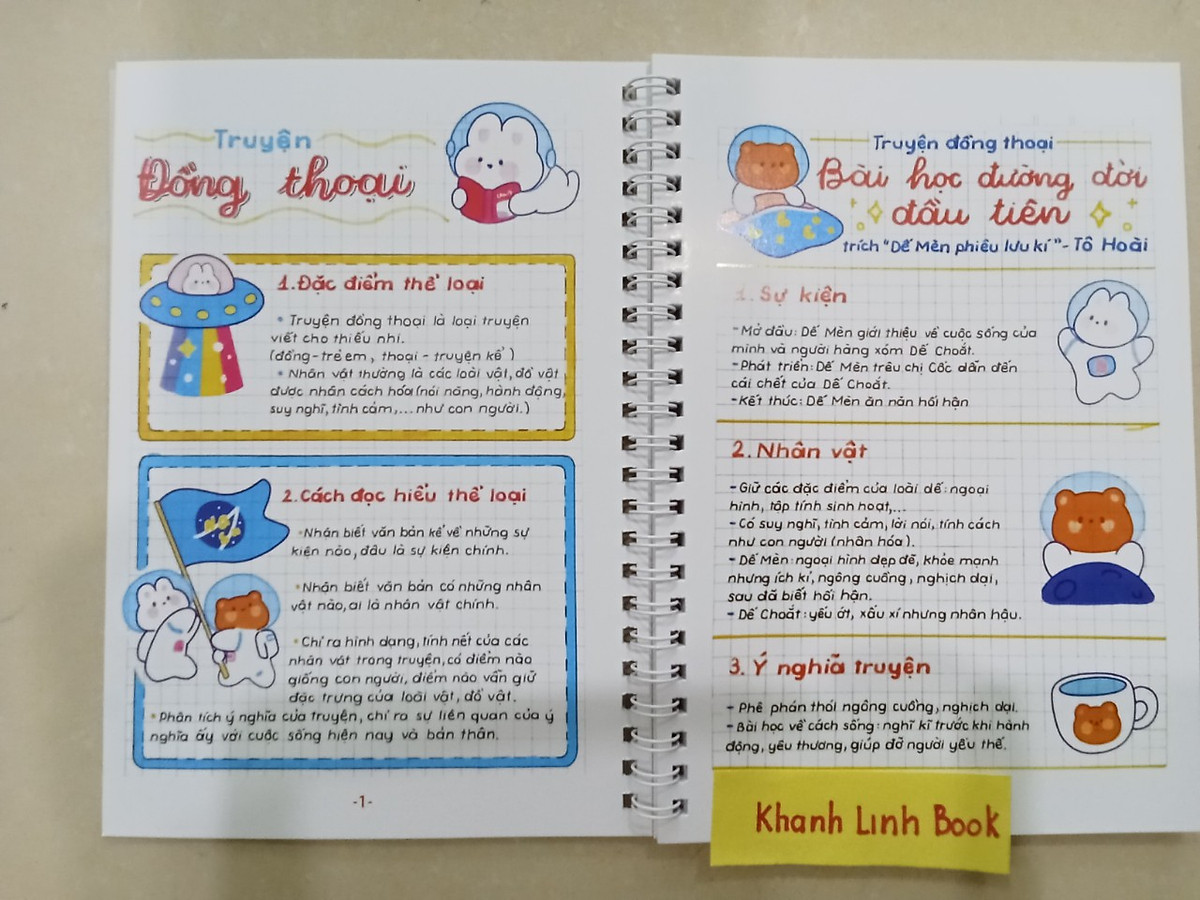 Truyện
Đồng thoại
1. Đặc điểm thể loại
• Truyện đồng thoại là loại truyện
viết cho thiếu nhi.
(đồng-trẻ em, thoại - truyện kể)
• Nhân vật thường là các loài vật, đồ vật
được nhân cách hóa (nói năng, hành động,
suy nghĩ, tình cảm,... như con người.)
2. Cách đọc hiểu thể loại
• Nhận biết văn bản kể về những sự
kiện nào, đâu là sự kiện chính.
• Nhận biết văn bản có những nhân
vật nào, ai là nhân vật chính.
• Chỉ ra hình dạng, tính nết của các
nhân vật trong truyện, có điểm nào
giống con người, điểm nào vẫn giữ
đặc trưng của loài vật, đồ vật.
• Phân tích ý nghĩa của truyện, chỉ ra sự liên quan của ý
nghĩa ấy với cuộc sống hiện nay và bản thân.
-1-
Truyện đồng thoại
Bài học đường đời
đầu tiên
trích "Dế Mèn phiêu lưu kí" - Tô Hoài
1. Sự kiện
- Mở đầu: Dế Mèn giới thiệu về cuộc sống của
mình và người hàng xóm Dế Choắt.
- Phát triển: Dế Mèn trêu chị Cốc dẫn đến
cái chết của Dế Choắt.
- Kết thúc: Dế Mèn ăn năn hối hận
2. Nhân vật
- Giữ các đặc điểm của loài dế: ngoại
hình, tập tính sinh hoạt,...
- Có suy nghĩ, tình cảm, lời nói, tính cách
như con người (nhân hóa).
- Dế Mèn: ngoại hình đẹp đẽ, khỏe mạnh
nhưng ích kỉ, ngông cuồng, nghịch dại,
sau đã biết hối hận.
- Dế Choắt: yếu ớt, xấu xí nhưng nhân hậu.
3. Ý nghĩa truyện
- Phê phán thói ngông cuồng, nghịch dại.
- Bài học về cách sống: nghĩ kĩ trước khi hành
động, yêu thương, giúp đỡ người yếu thế.
Khanh Linh Book